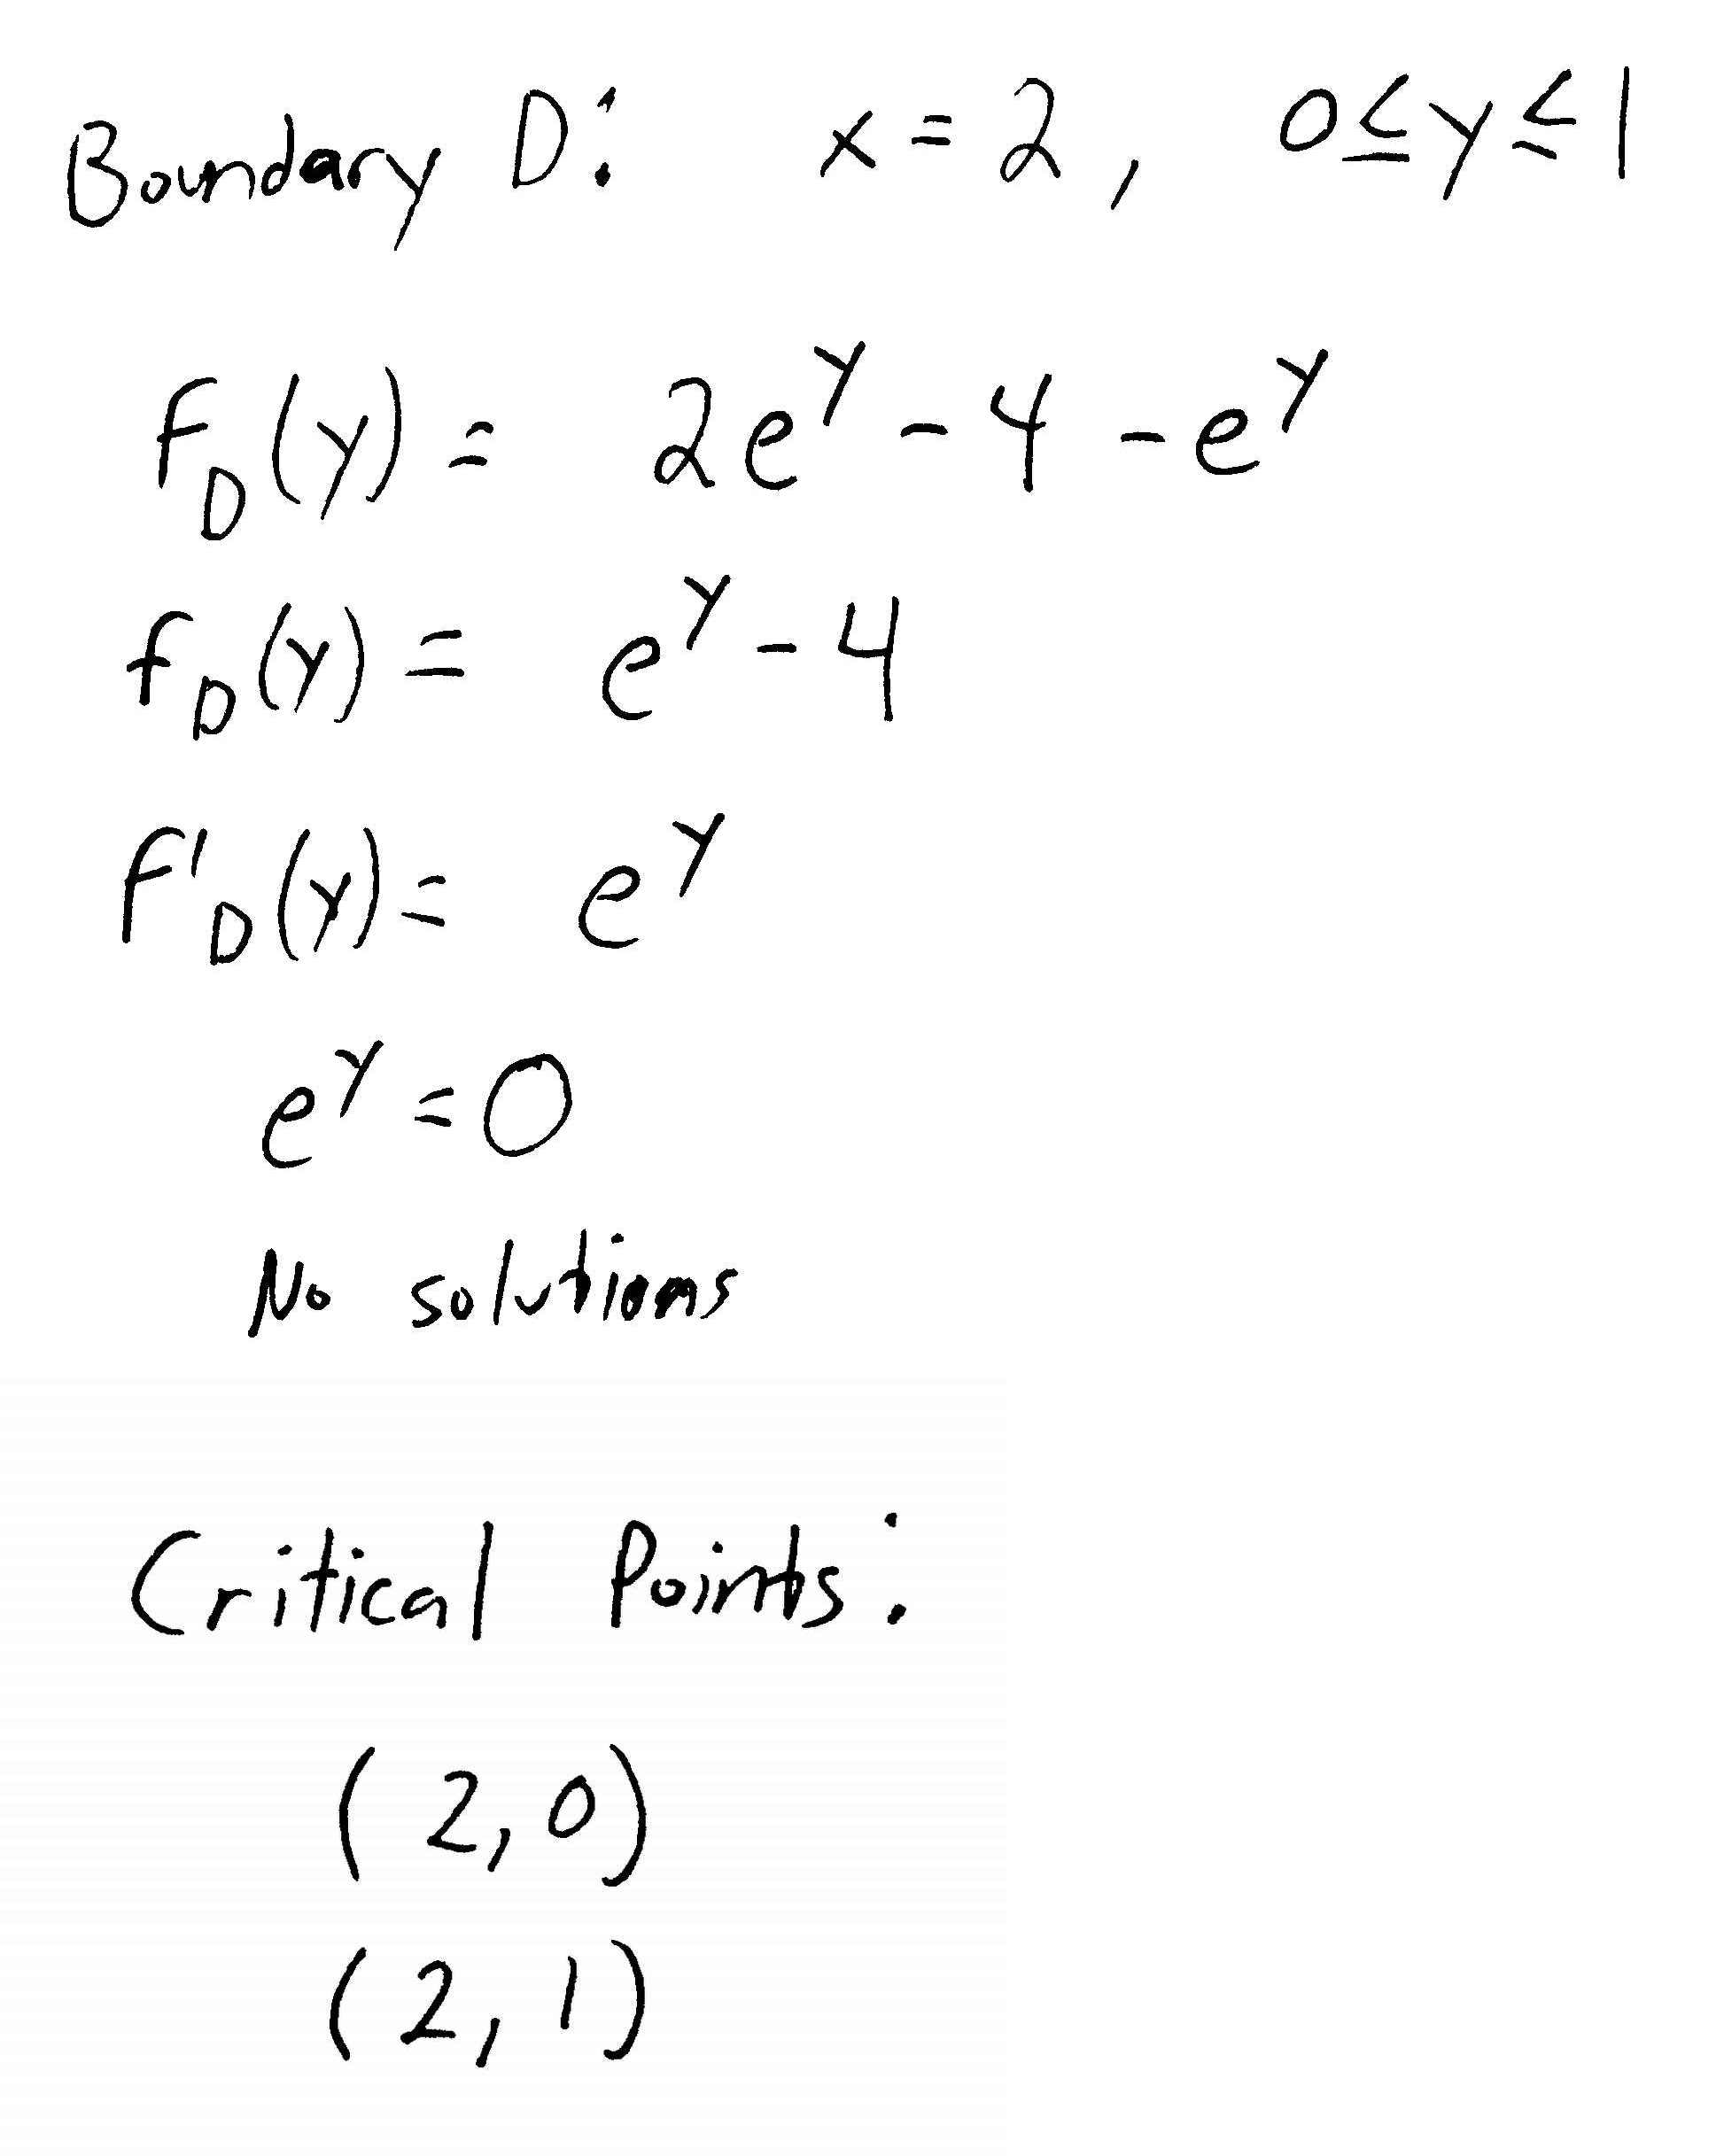 Boundary D: x = 2, 0 ≤ y ≤ 1
f_D(y) = 2e^y - 4 - e^y
f_D(y) = e^y - 4
f'_D(y) = e^y
e^y = 0
No solutions
Critical Points:
(2, 0)
(2, 1)